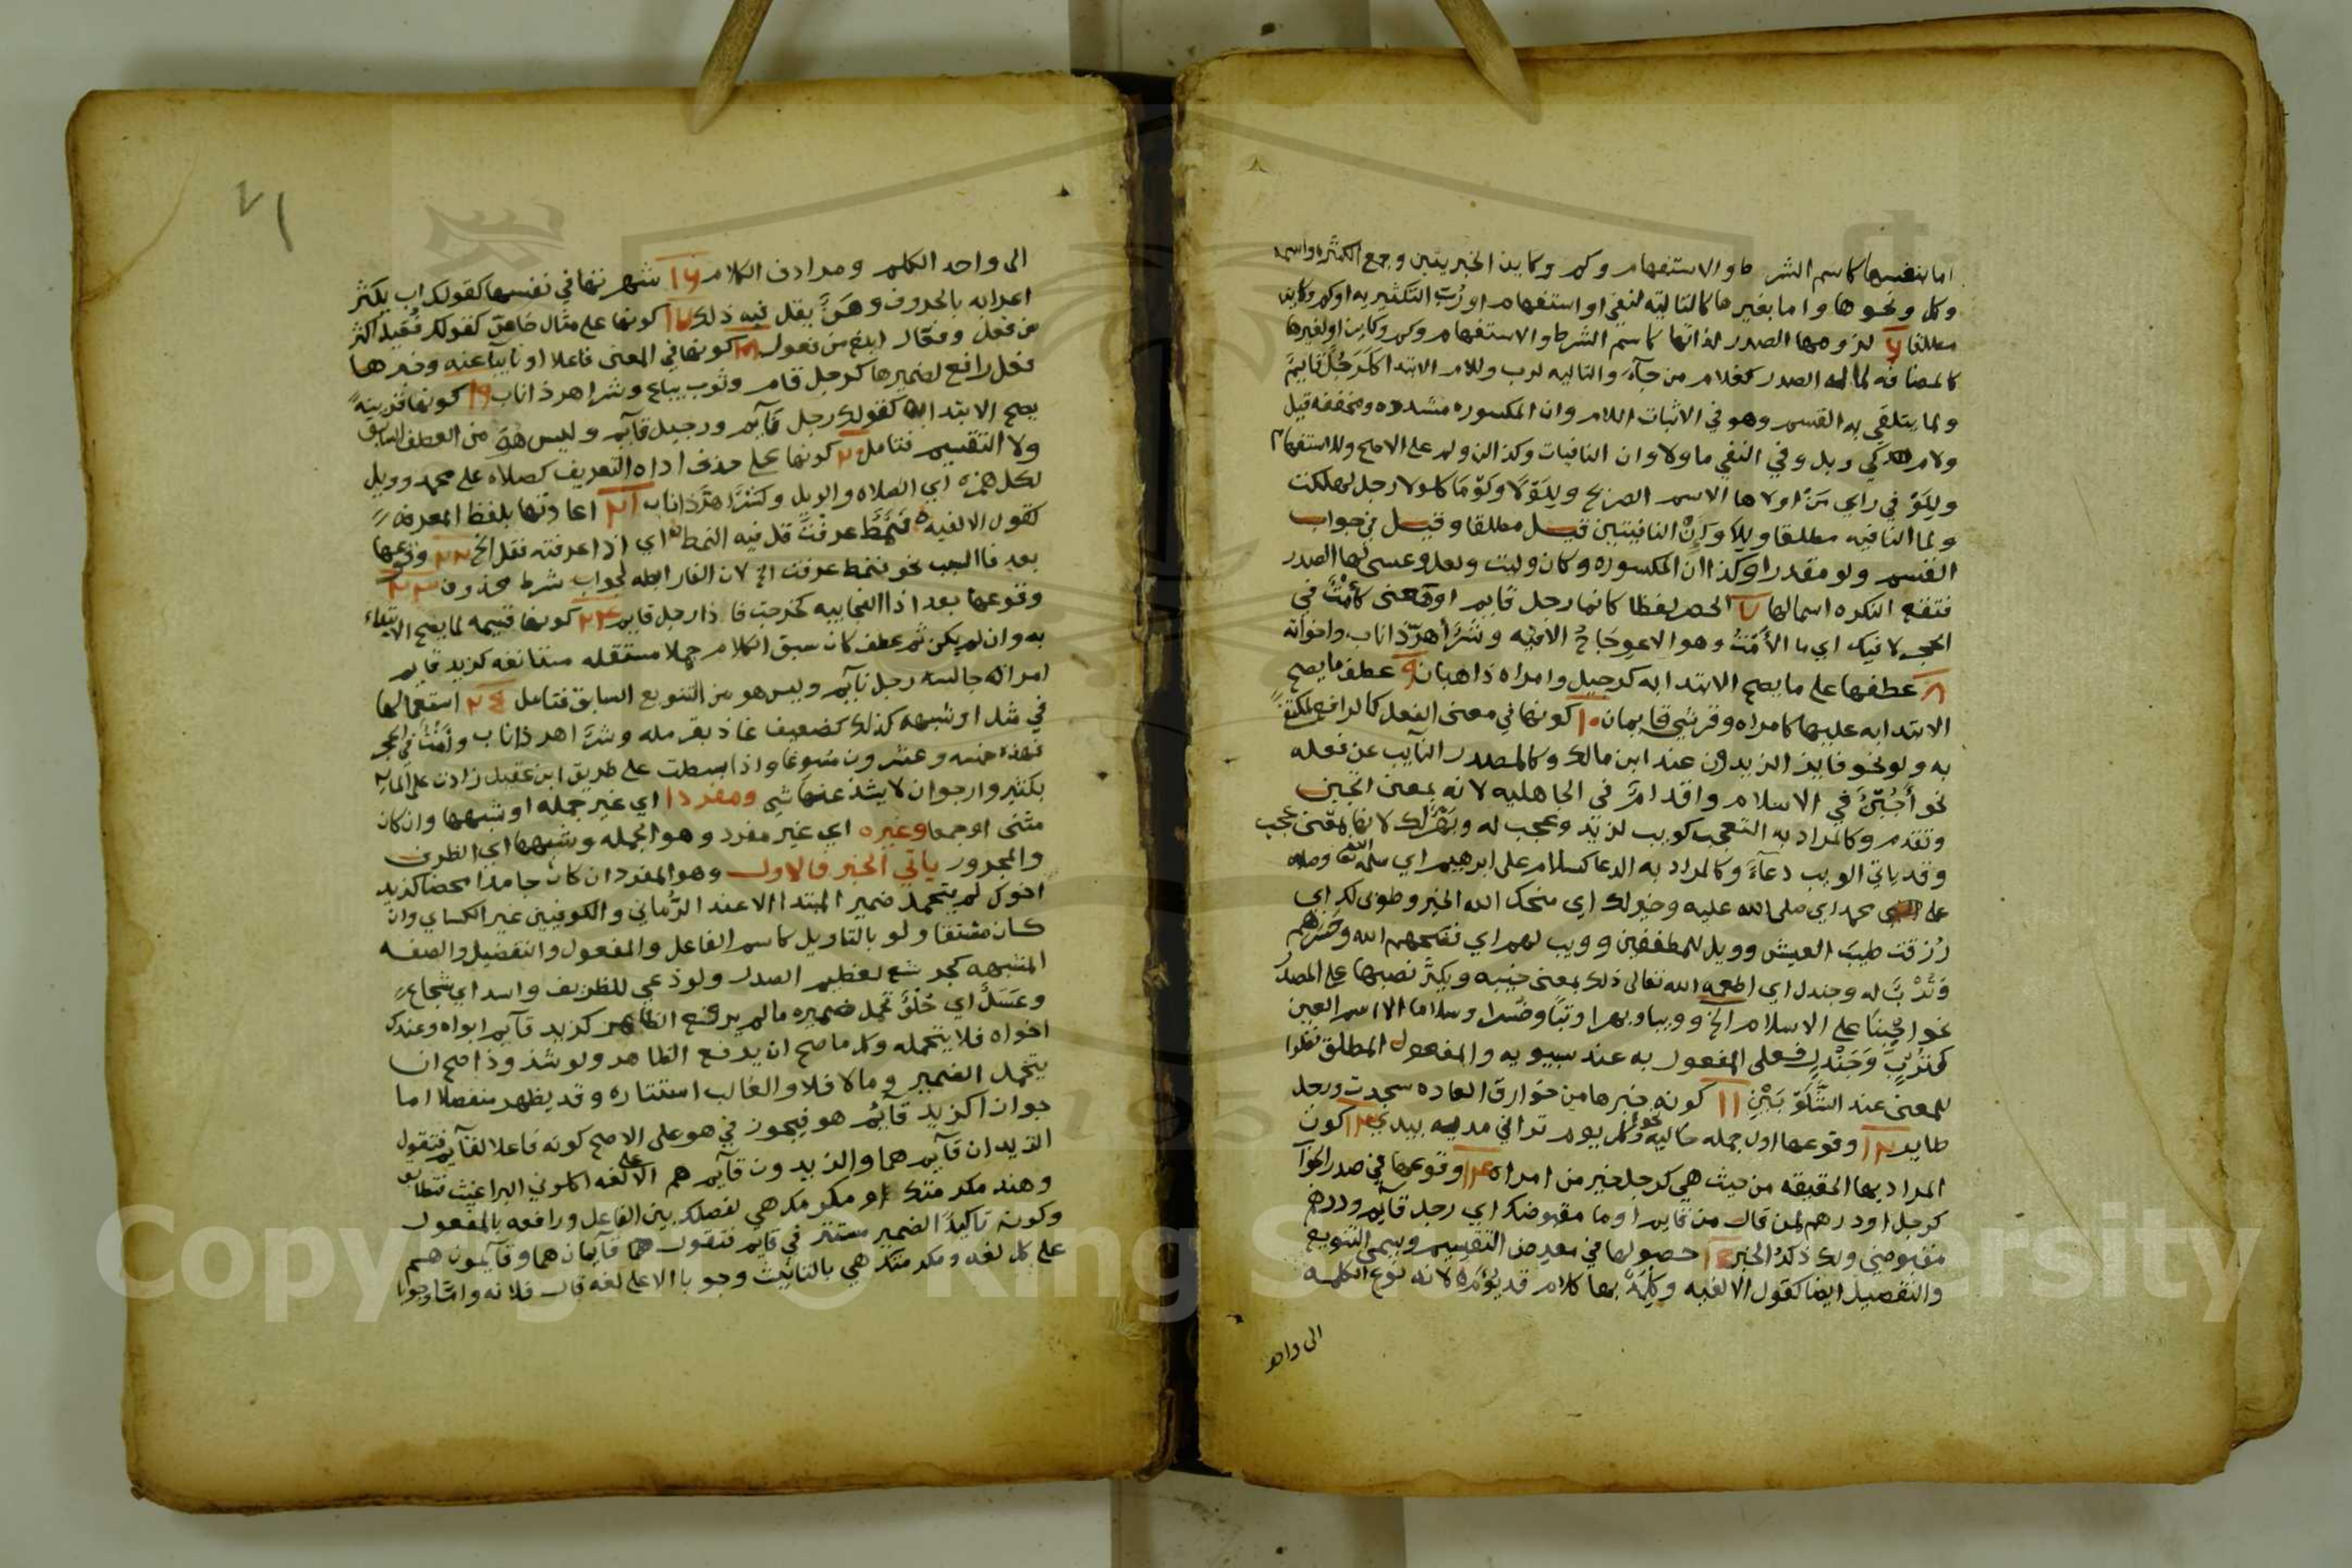 اما بنفسها كاسم الشرط والاستفهام وكم وكاين الخبريتين وجمع الكثره واسمه
وكل ونحوها واما بغيرها كالتاليه لنفي او استفهام او رب التكثير به او كم وكاين
مطلقا ٦ لزومها الصدر لذاتها كاسم الشرط والاستفهام وكم وكاين او لغيرها
كالمضافه لما له الصدر كغلام من جآء والتاليه لرب وللام الابتدا كلرجل قايم
ولما يتلقى به القسم وهو في الاثبات اللام وان المكسوره مشدده ومخففه قيل
ولام كي وبل وفي النفي ما ولا وان النافيات وكذا لن ولم على الاصح وللاستفهام
وللو في راي اولاها الاسم الصريح وللولا ولوما كلولا رجل لهلكت
ولما النافيه مطلقا وللا وان النافيتين قيل مطلقا وقيل في جواب
القسم ولو مقدرا وكذا ان المكسوره وكان وليت ولعل وعسى لها الصدر
فتقع النكره اسما لها ٧ الحصر لفظا كانما رجل قايم او معنى كامت في
الحجر لا فيك اي ما الامت وهو الاعوجاج الا فيه وشر اهر ذا ناب واخواته
٨ عطفها على ما يصح الابتدا به كرجيل وامراه ذاهبان ٩ عطف ما يصح
الابتدا به عليها كامراه وقرشي قايمان ١٠ كونها في معنى الفعل كالرافع لمكتفى
به ولو نحو فايز الزيدون عند ابن مالك وكالمصدر النآيب عن فعله
نحو أجبن في الاسلام واقدام في الجاهليه لانه بمعنى اتجبن
وتقدم وكالمراد به التعجب كويب لزيد وعجب له لانها بمعنى عجب
وقد ياتي الويب دعآء وكالمراد به الدعا كسلام على ابرهيم اي سلمه الله
على محمد اي صلى الله عليه وخير لك اي منحك الله الخير وطوبى لك اي
رزقت طيب العيش وويل للمطففين وويب لهم اي
وترب له وجندل اي اطعمه الله تعالى ذلك بمعنى خيبه ويكثر نصبها على المصدر
نحو اجبنا على الاسلام الخ وويبا وبهرا وتبا وسلاما الا اسم العين
كترب وجندل فعلى المفعول به عند سيبويه والمفعول المطلق نظرا
للمعنى عند الشلوبين ١١ كونه خبرها من خوارق العاده سجدت ورجل
طاير ١٢ وقوعها اول جمله حاليه نحو وكل يوم تراني مديه بيدي ١٣ كون
المراد بها الحقيقه من حيث هي كرجل خير من امراه ١٤ وقوعها في صدر الجواب
كرجل او درهم لمن قال من قايم او ما مقبوضك اي رجل قآيم ودرهم
مقبوضي ولك ذكر الخبر ١٥ حصولها في معرض التقسيم ويسمى التنويع
والتفصيل ايضا كقول الالفيه وكلمة بها كلام قد يؤم لانه نوع الكلمه
الى واحد
٧١
الى واحد الكلم ومرادف الكلام ١٦ شهرتها في نفسها كقولك اب يكثر
اعرابه بالحروف وهن يقل فيه ذلك ١٧ كونها على مثال خاص كقولك فعيل اكثر
من فعل وفعال ابلغ من فعول ١٨ كونها في المعنى فاعلا او نايبا عنه وخبرها
فعل رافع لضميرها كرجل قام وثوب يباع وشر اهر ذا ناب ١٩ كونها قرينة
يصح الابتدا بها كقولك رجل قآيم ورجيل قآيم وليس هو من العطف السابق
ولا التقسيم فتامل ٢٠ كونها على حذف اداه التعريف كصلاه على محمد وويل
لكل همزه اي الصلاه والويل وكشر اهر ذا ناب ٢١ اعادتها بلفظ المعرفه
كقول الالفيه فنمط عرفت قل فيه النمط اي اذا عرفته فقل الخ ٢٢ وقوعها
بعد فا السبب نحو فنمط عرفت الخ لان الفا رابطه لجواب شرط محذوف ٢٣
وقوعها بعد اذا الفجاييه كخرجت فاذا رجل قايم ٢٤ كونها قسيمه لما يصح الابتداء
به وان لم يكن ثم عطف كان سبق الكلام جملا مستقله متتابعه كزيد قايم
امراه جالسه رجل نآيم وليس هو من التنويع السابق فتامل ٢٥ استعمالها
في مثل او شبهه كذلك كضعيف عاذ بقرمله وشر اهر ذا ناب وامت في الحجر
فهذه خمسه وعشرون مسوغا واذا بسطت على طريق ابن عقيل زادت على المايه
بكثير وارجو ان لا يشذ عنها شي ومفردا اي غير جمله او شبهها وان كان
مثنى او جمعا وغيره اي غير مفرد وهو الجمله وشبهها اي الظرف
والمجرور ياتي الخبر فالاول وهو المفرد ان كان جامدا محضا كزيد
اخوك لم يتحمل ضمير المبتدا الا عند الرماني والكوفيين غير الكساي وان
كان مشتقا ولو بالتاويل كاسم الفاعل والمفعول والتفضيل والصفه
المشبهه كجرشع لعظيم الصدر ولوذعي للظريف واسد اي شجاع
وعسل اي حلو تحمل ضميره ما لم يرفع الظاهر كزيد قآيم ابواه وعندك
اخواه فلا يتحمله وكل ما صح ان يرفع الظاهر ولو شذوذا صح ان
يتحمل الضمير وما لا فلا والغالب استتاره وقد يظهر منفصلا اما
جوازا كزيد قآئم هو فيجوز في هو على الاصح كونه فاعلا لقآيم فتقول
الزيدان قآيم هما والزيدون قآيم هم الا على لغه اكلوني البراغيث فتطابق
وهند مكرمتك او مكرمك هي لفصلك بين الفاعل ورافعه بالمفعول
وكونه تاكيدا لضمير مستتر في قايم فتقول هما قآيمان هما وقآيمون هم
على كل لغه ومكرمتك هي بالتانيث وجوبا الا على لغه قال فلانه واما وجوبا